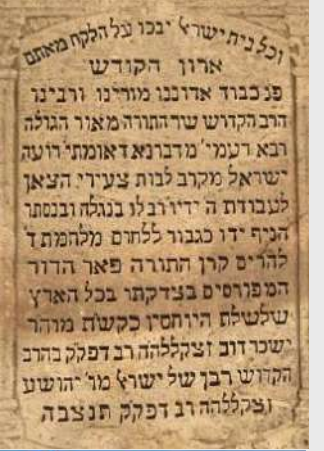 וכל בית ישראל יבכו על הלקח מאתם
ארון הקודש
פנ כבוד אדוננו מורינו ורבינו
הרב הקדוש שר התורה מאור הגולה
רבא דעמי׳ מדברנא דאומתי׳ רועה
ישראל מקרב לבות צעירי הצאן
לעבודת ה׳ ידיו רב לו בנגלה ובנסתר
הניף ידו כגבור ללחום מלחמת ד׳
להרים קרן התורה פאר הדור
המפורסים בצדקתו בכל הארץ
שלשלת היוחסין כקשת מוהר
ישכר דוב זצקללהה רב דפקק בהרב
הקדוש רבן של ישראל מו׳ יהושע
זצקללהה רב דפקק תנצבה